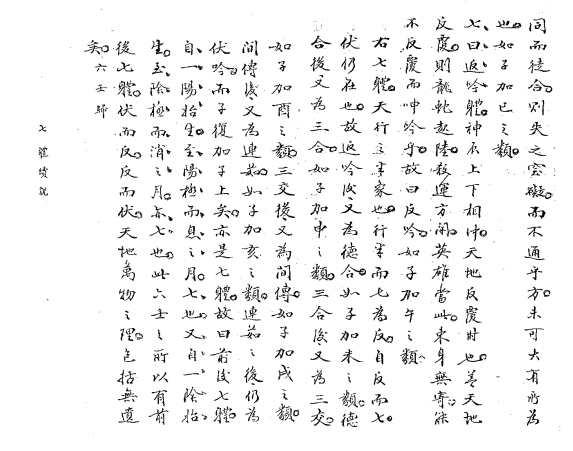 同而徒合。則失之窒礙。而不通乎方。未可大有所為
也。如子加巳之類。
七曰返吟體。神辰上下相冲。天地反覆時也。蓋天地
反覆。則龍蛇起陸。殺運方開。英雄當此。東身無寄。能
不反覆而呻吟乎。故曰反吟。如子加午之類。
右七體。天行之事家也。行事而七為反。自反而七。
伏仍在也。故返吟後又為德合。如子加未之類。德
合後又為三合。如子加申之類。三合後又為三交。
如子加酉之類。三交後又為間傳。如子加戌之類。
間傳後又為連茹。如子加亥之類。連茹之後仍為
伏吟。而子復加子上矣。亦是七體。故曰前後七體。
自一陽始生。至陽極而息之月。七也。又自一陰始
生。至陰極而消之月。亦七也。此六壬之所以有前
後七體。伏而反。反而伏。天地萬物之理。包括無遺
矣。六壬歸
七體總說